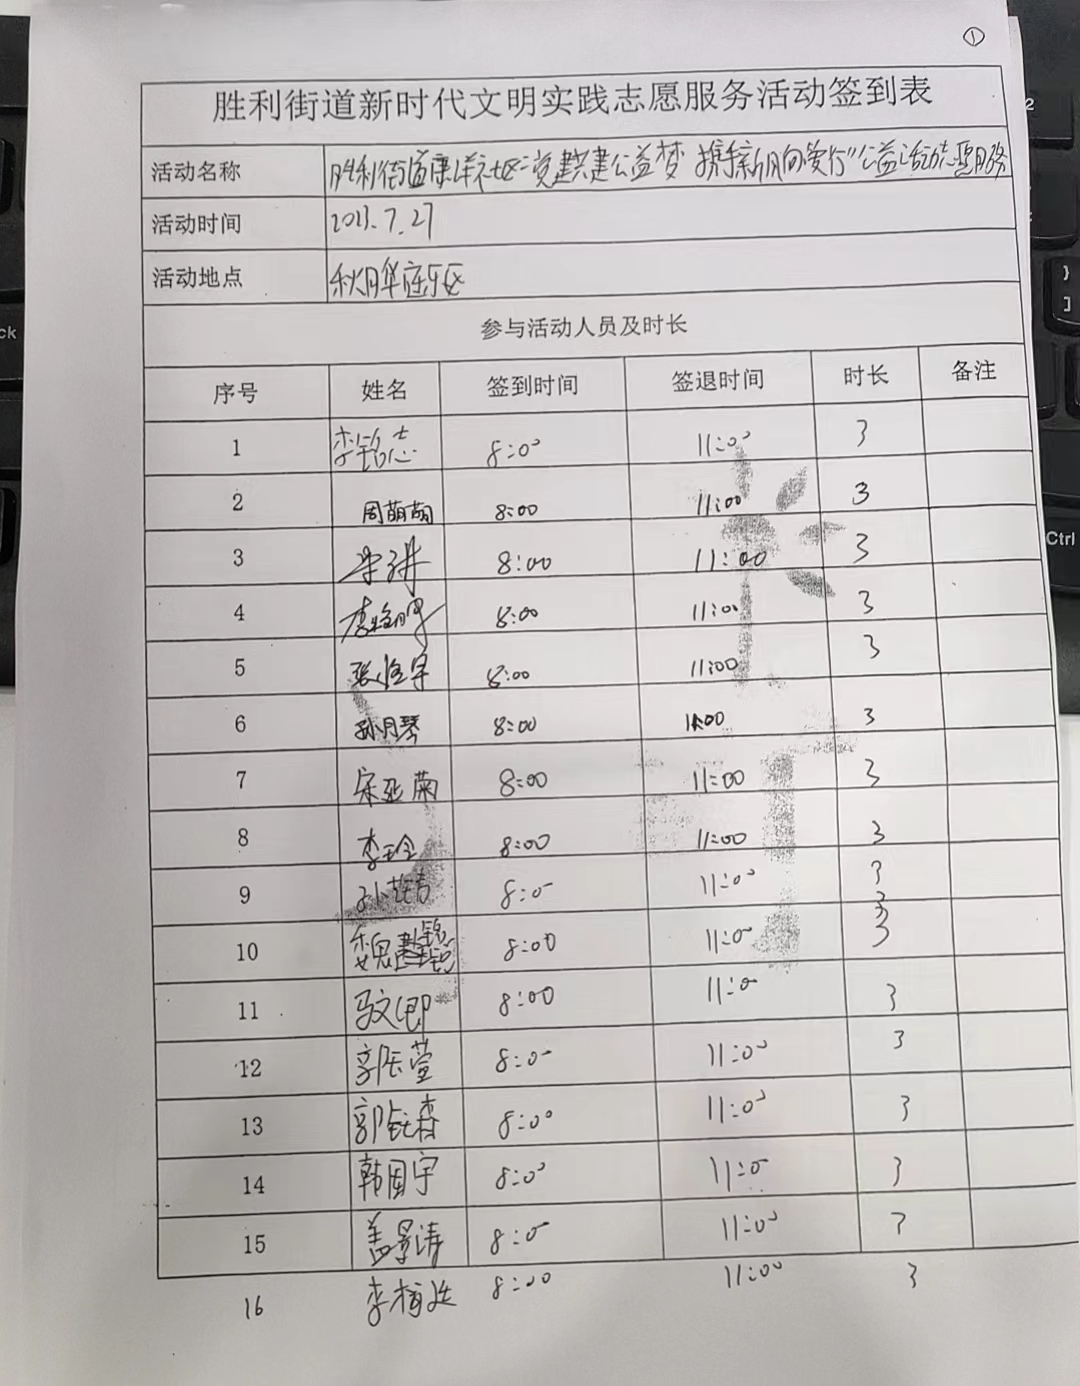 ①
胜利街道新时代文明实践志愿服务活动签到表
活动名称 胜利街道康洋社区"党建共建公益梦 携手新风向爱行"公益活动志愿服务
活动时间 2023.7.27
活动地点 秋月华庭小区
参与活动人员及时长
序号 姓名 签到时间 签退时间 时长 备注
1 李铭志 8:00 11:00 3
2 周萌萌 8:00 11:00 3
3 8:00 11:00 3
4 8:00 11:00 3
5 8:00 11:00 3
6 孙月琴 8:00 11:00 3
7 宋亚菊 8:00 11:00 3
8 李玲 8:00 11:00 3
9 8:00 11:00 3
10 魏 8:00 11:00 3
11 马文卿 8:00 11:00 3
12 萱 8:00 11:00 3
13 郭钰森 8:00 11:00 3
14 韩国宇 8:00 11:00 3
15 盖景涛 8:00 11:00 3
16 李 8:00 11:00 3
2
Ctrl